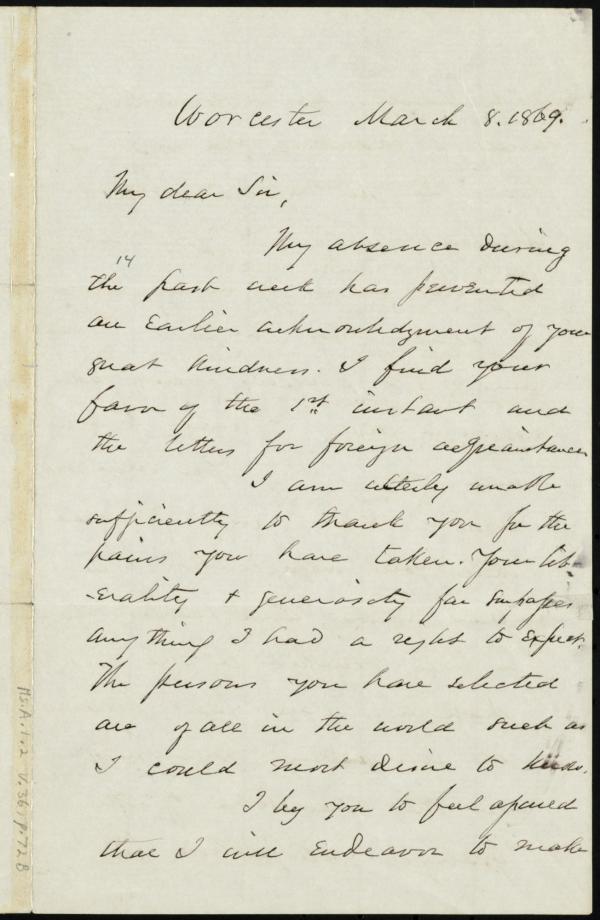 Worcester March 8. 1869.
My dear Sir,
My absence during
14
the past week has prevented
an earlier acknowledgment of your
great kindness. I find your
favor of the 1st instant and
the letters for foreign acquaintances
I am utterly unable
sufficiently to thank you for the
pains you have taken. Your lib-
-erality & generosity far surpasses
anything I had a right to expect.
The persons you have selected
are of all in the world such as
I could most desire to know.
I beg you to feel assured
that I will endeavor to make
Ms.A.1.2 V.36, p.72B